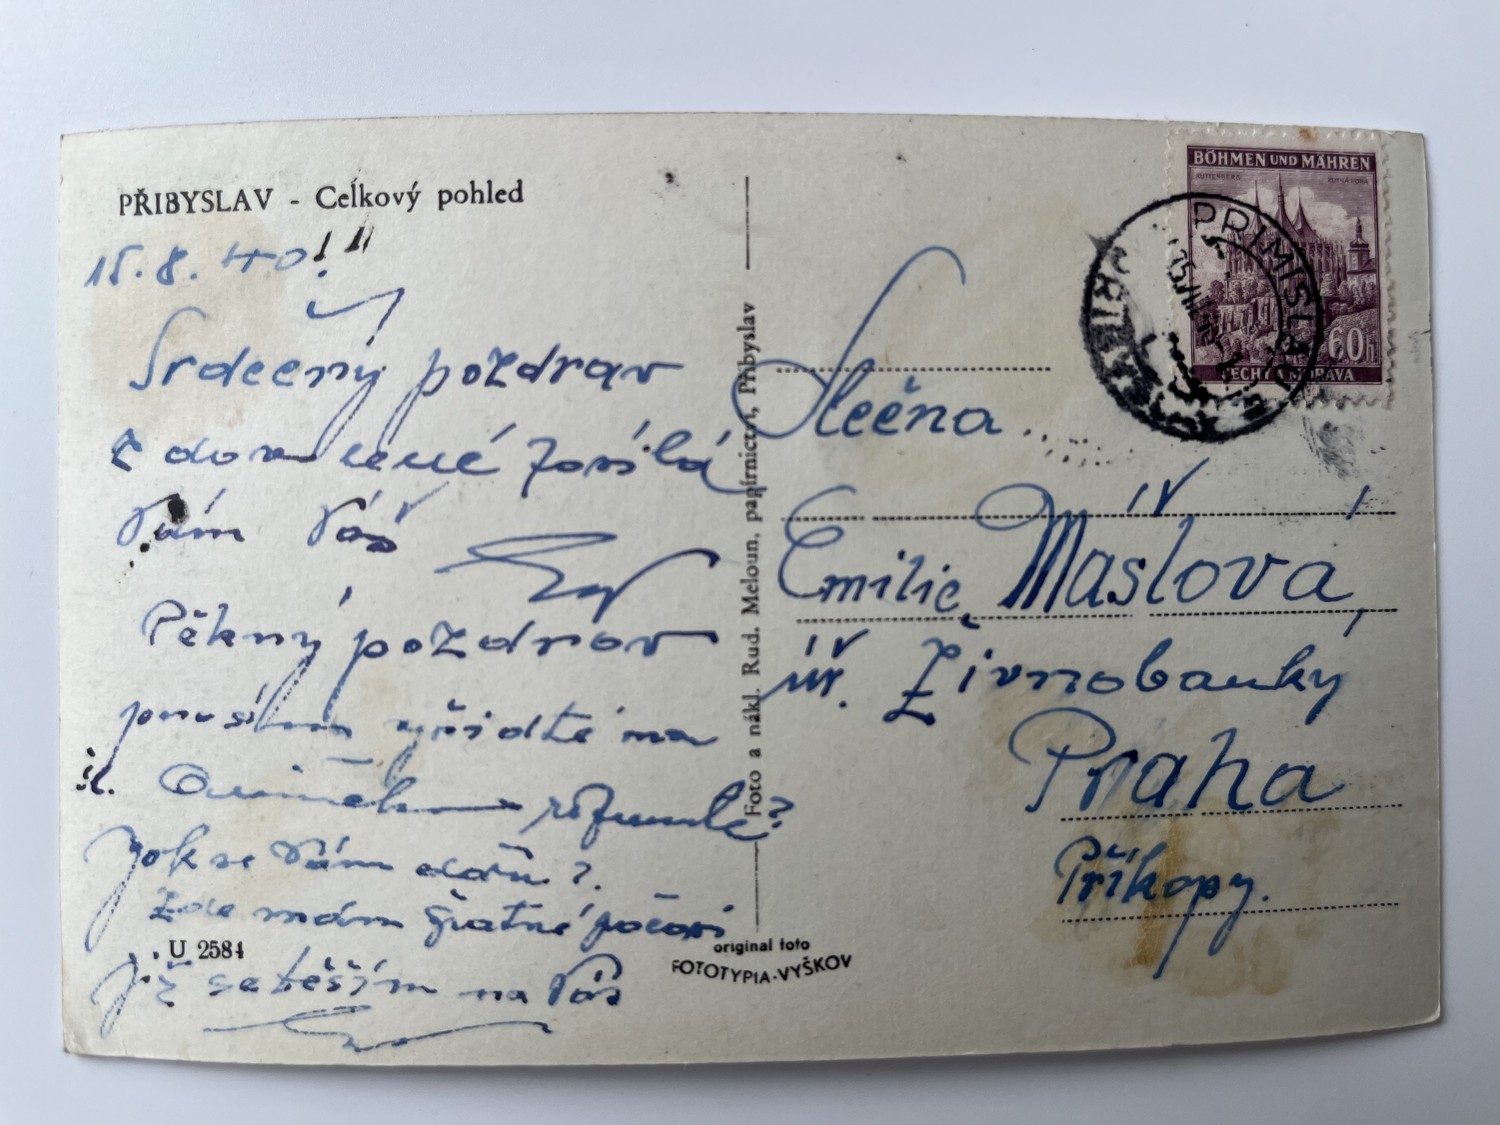 PŘIBYSLAV - Celkový pohled
15.8.40!
Srdečný pozdrav
z dovolené zasílá
Vám Váš
Pěkný pozdrav
prosím vyřidte na
sl.
Jak se Vám daří?
Zde mám špatné počasí
Již se těším na Vás
U 2584
Foto a nákl. Rud. Meloun, papírnictví, Přibyslav
original foto
FOTOTYPIA-VYŠKOV
BÖHMEN UND MÄHREN
KUTTENBERG KUTNÁ HORA
60h
ČECHY A MORAVA
PRIMISLAU
PŘIBYSLAV
Slečna
Emilie Máslová,
úř. Živnobanky
Praha
Příkopy.